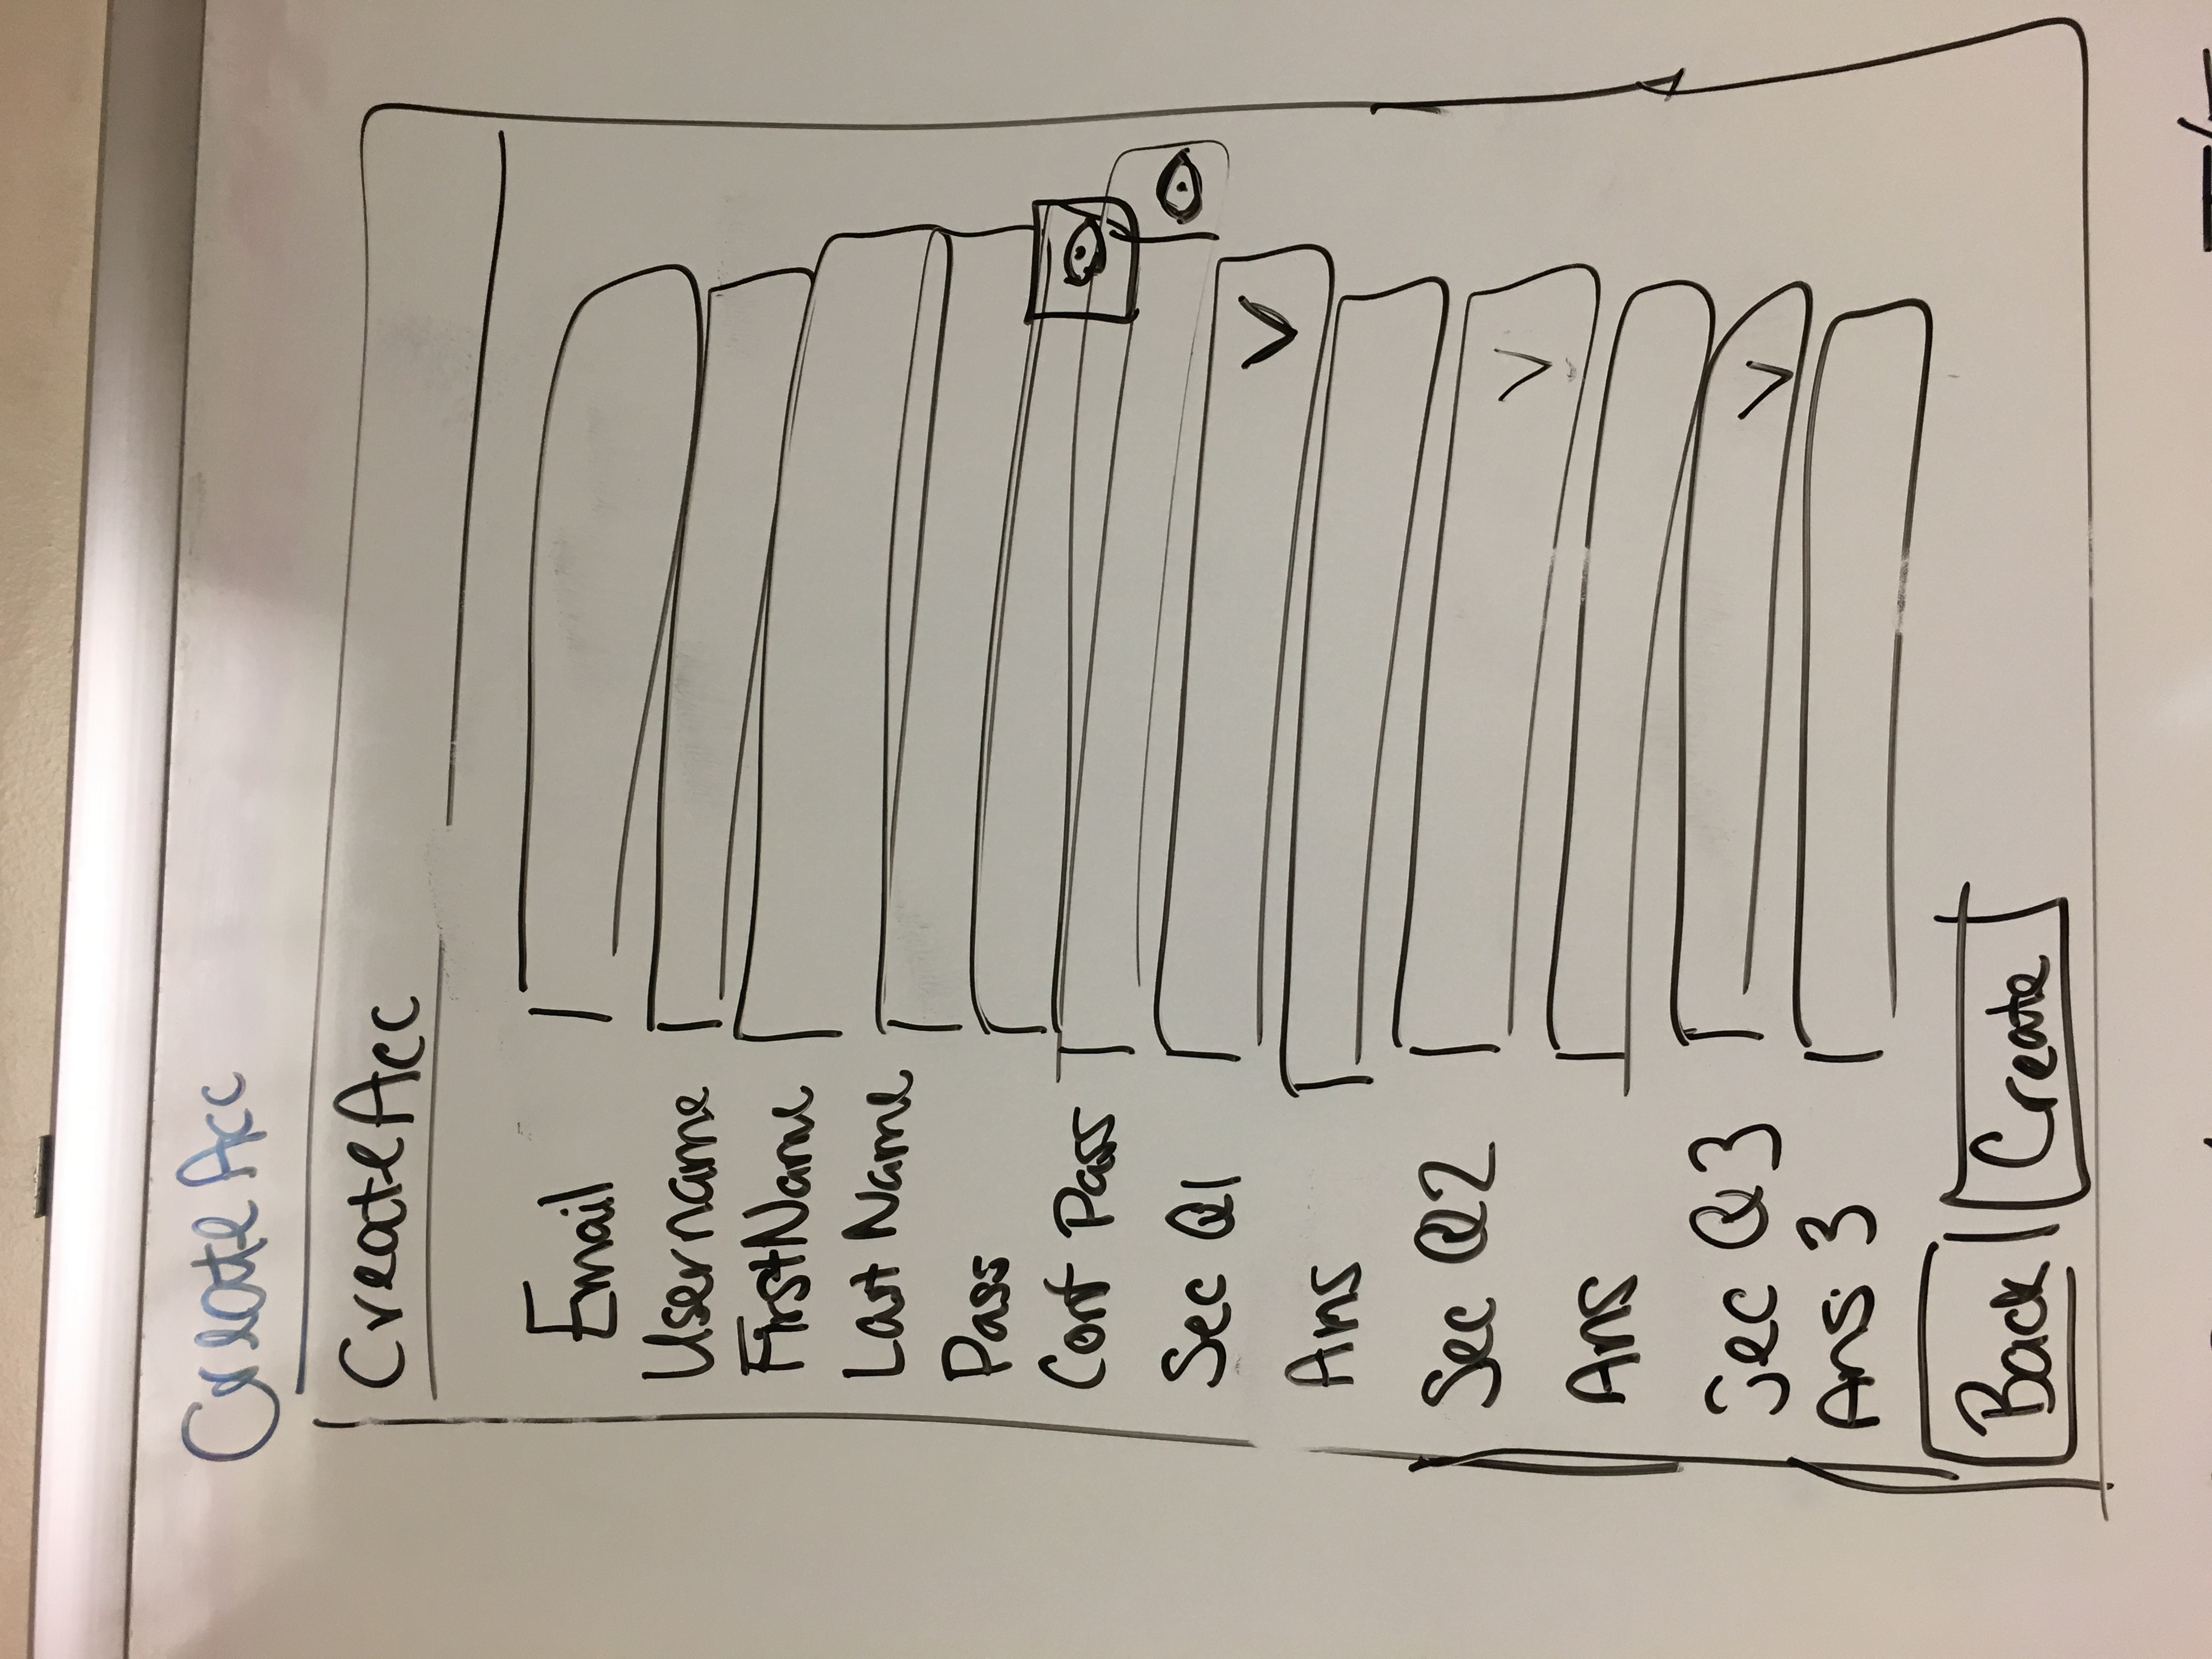 Create Acc
Create Acc
Email
Username
First Name
Last Name
Pass
Conf Pass
Sec Q1
Ans
Sec Q2
Ans
Sec Q3
Ans 3
Back
Create